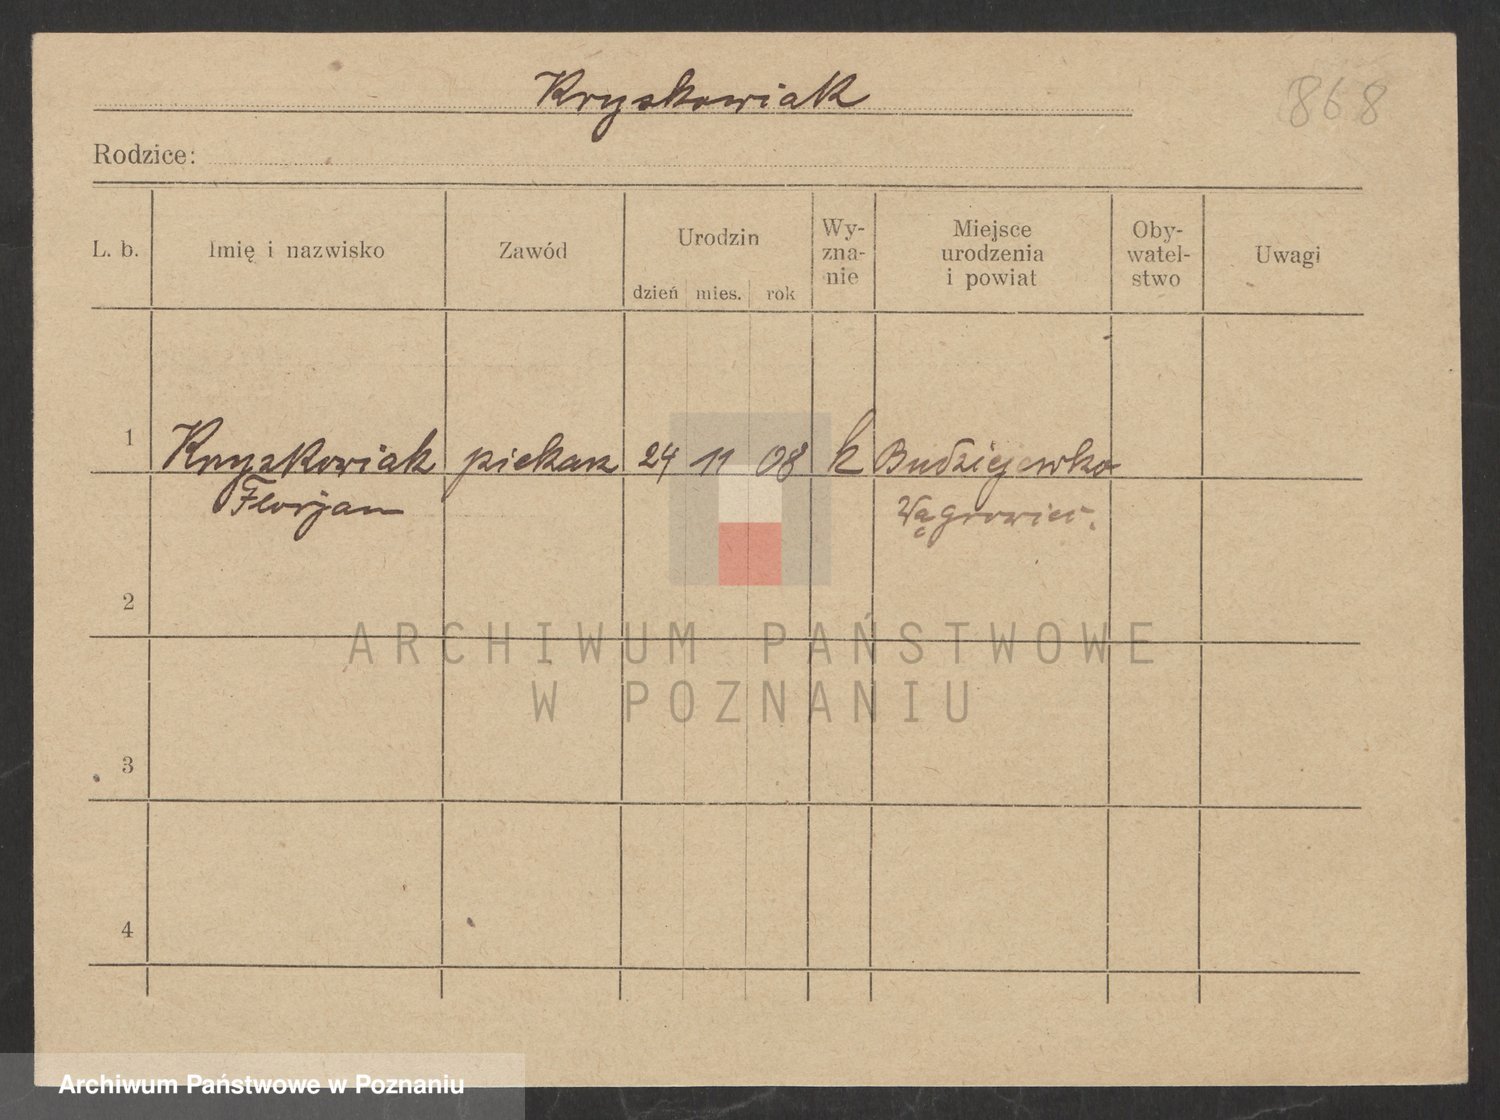 Kryskowiak
868
Rodzice:
L. b. Imię i nazwisko Zawód Urodzin dzień mies. rok Wy-zna-nie Miejsce urodzenia i powiat Oby-watel-stwo Uwagi
1 Kryskowiak piekarz 24 11 08 k Budziejewko
Florjan Wągrowiec.
2
ARCHIWUM PAŃSTWOWE
W POZNANIU
3
4
Archiwum Państwowe w Poznaniu